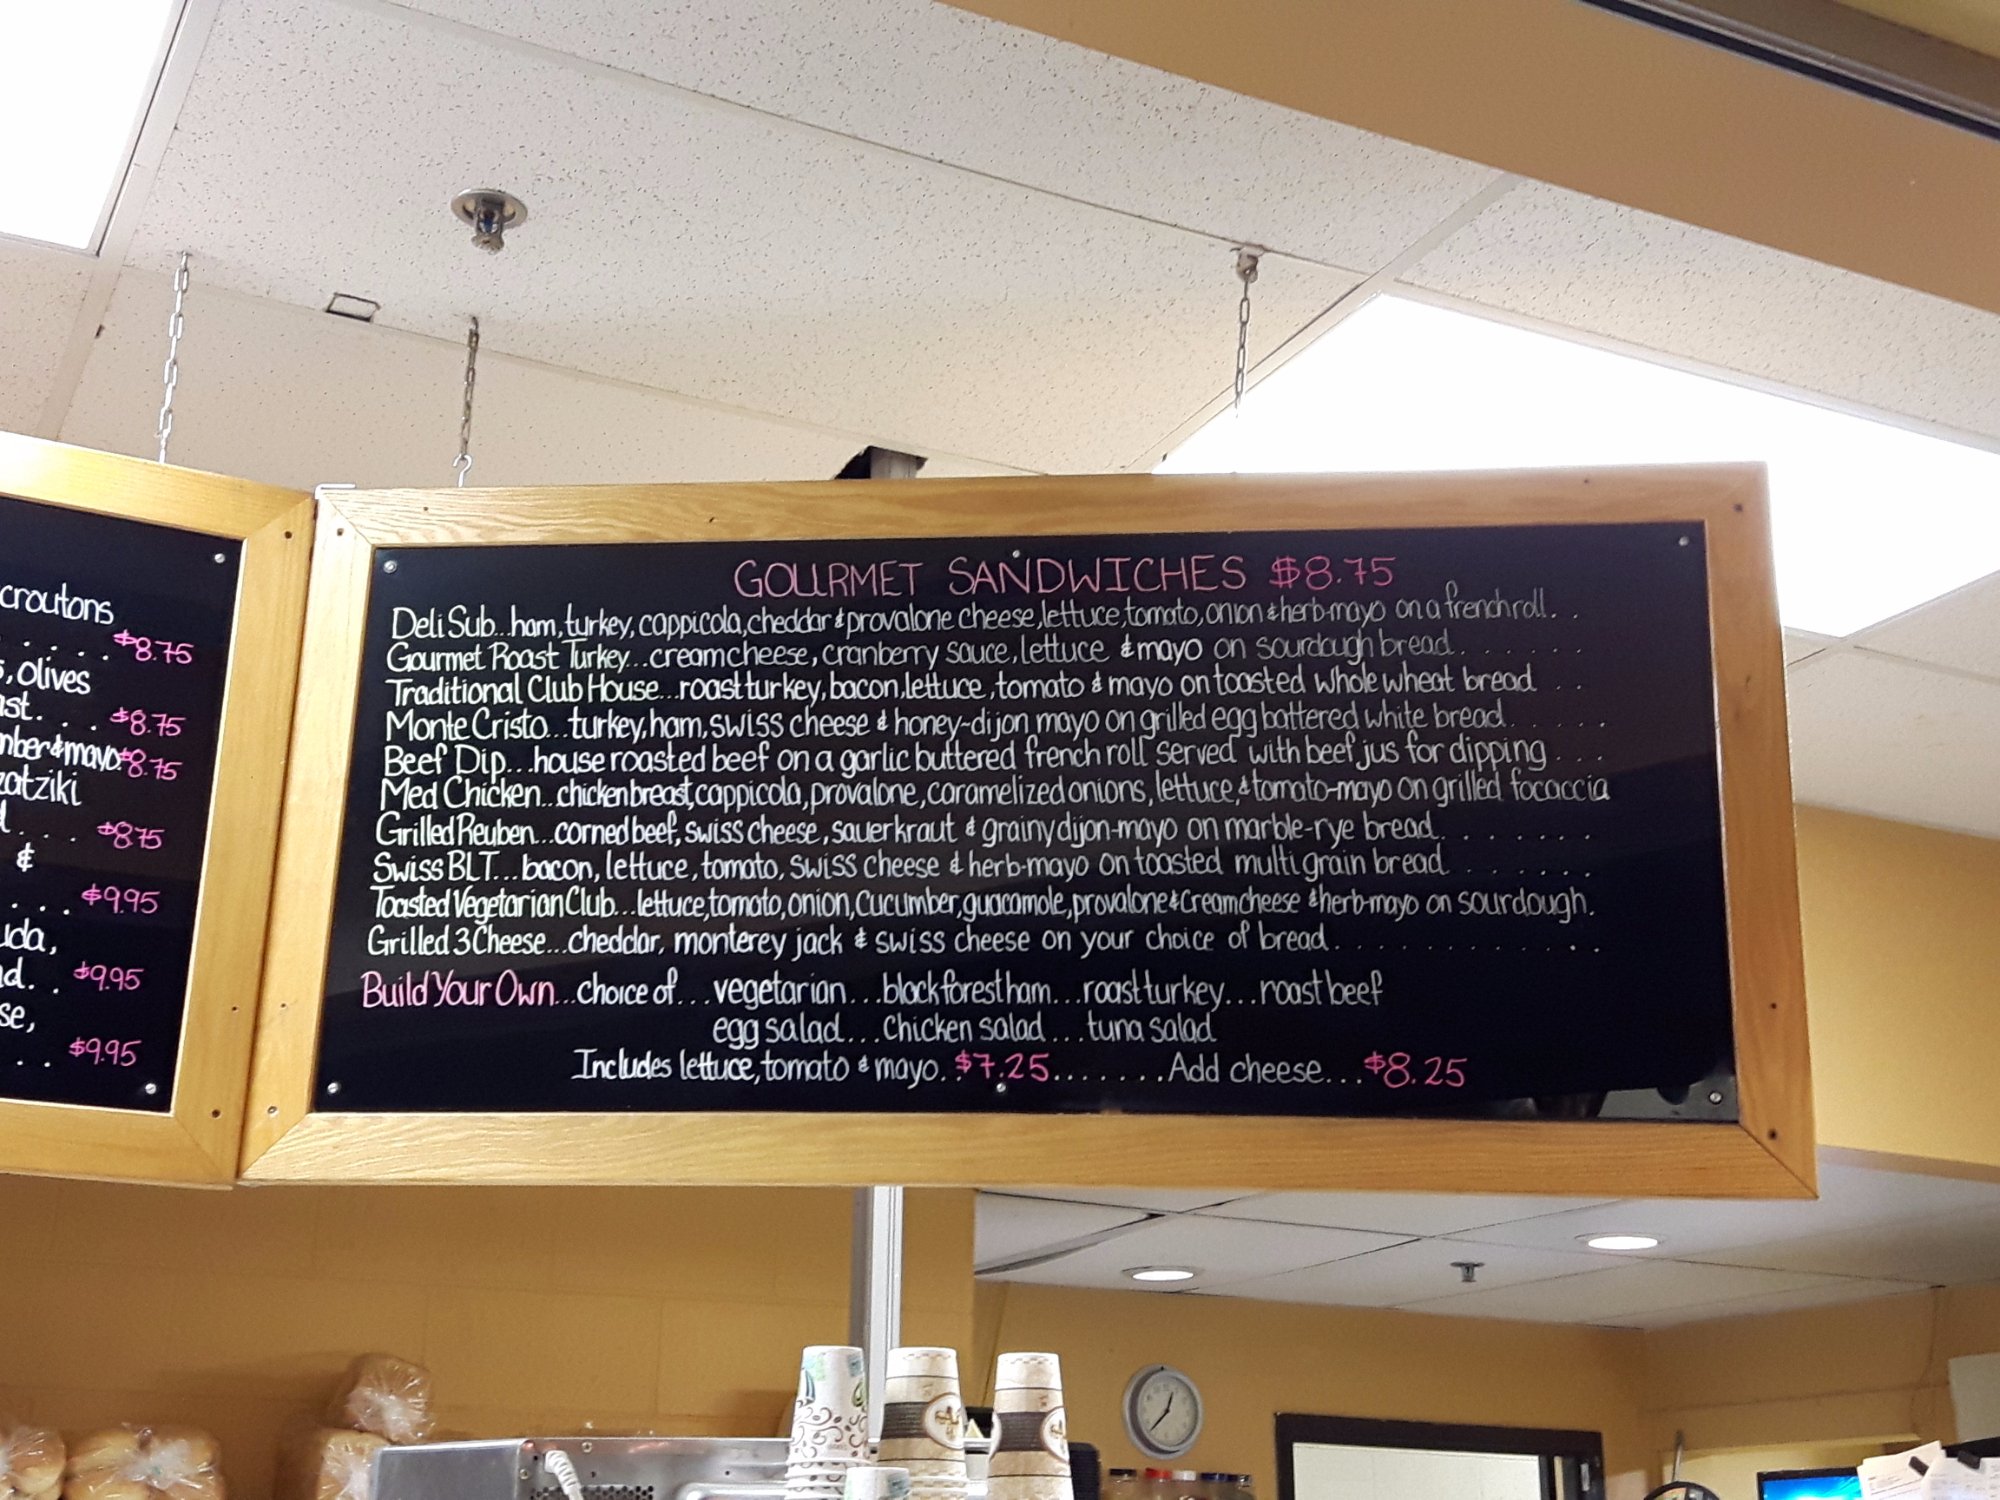 croutons
. . . . . $8.75
s, olives
ast. . . . $8.75
mber & mayo. $8.75
zatziki
. . . . $8.75
&
. . . $9.95
uda,
ad. . $9.95
se,
. . $9.95
GOURMET SANDWICHES $8.75
Deli Sub...ham, turkey, cappicola, cheddar & provalone cheese, lettuce, tomato, onion & herb-mayo on a french roll. .
Gourmet Roast Turkey...creamcheese, cranberry sauce, lettuce & mayo on sourdough bread. . . . . . .
Traditional Club House...roast turkey, bacon, lettuce, tomato & mayo on toasted whole wheat bread . .
Monte Cristo...turkey, ham, swiss cheese & honey-dijon mayo on grilled egg battered white bread. . . . .
Beef Dip...house roasted beef on a garlic buttered french roll served with beef jus for dipping . . .
Med Chicken...chicken breast, cappicola, provalone, caramelized onions, lettuce, & tomato-mayo on grilled focaccia
Grilled Reuben...corned beef, swiss cheese, sauerkraut & grainy dijon-mayo on marble-rye bread. . . . . . .
Swiss BLT...bacon, lettuce, tomato, swiss cheese & herb-mayo on toasted multi grain bread . . . . . . .
Toasted Vegetarian Club...lettuce, tomato, onion, cucumber, guacamole, provalone & creamcheese & herb-mayo on sourdough.
Grilled 3 Cheese...cheddar, monterey jack & swiss cheese on your choice of bread. . . . . . . . . . . . .
Build Your Own...choice of...vegetarian...black forest ham...roast turkey...roast beef
egg salad...chicken salad...tuna salad
Includes lettuce, tomato & mayo. . $7.25.......Add cheese...$8.25